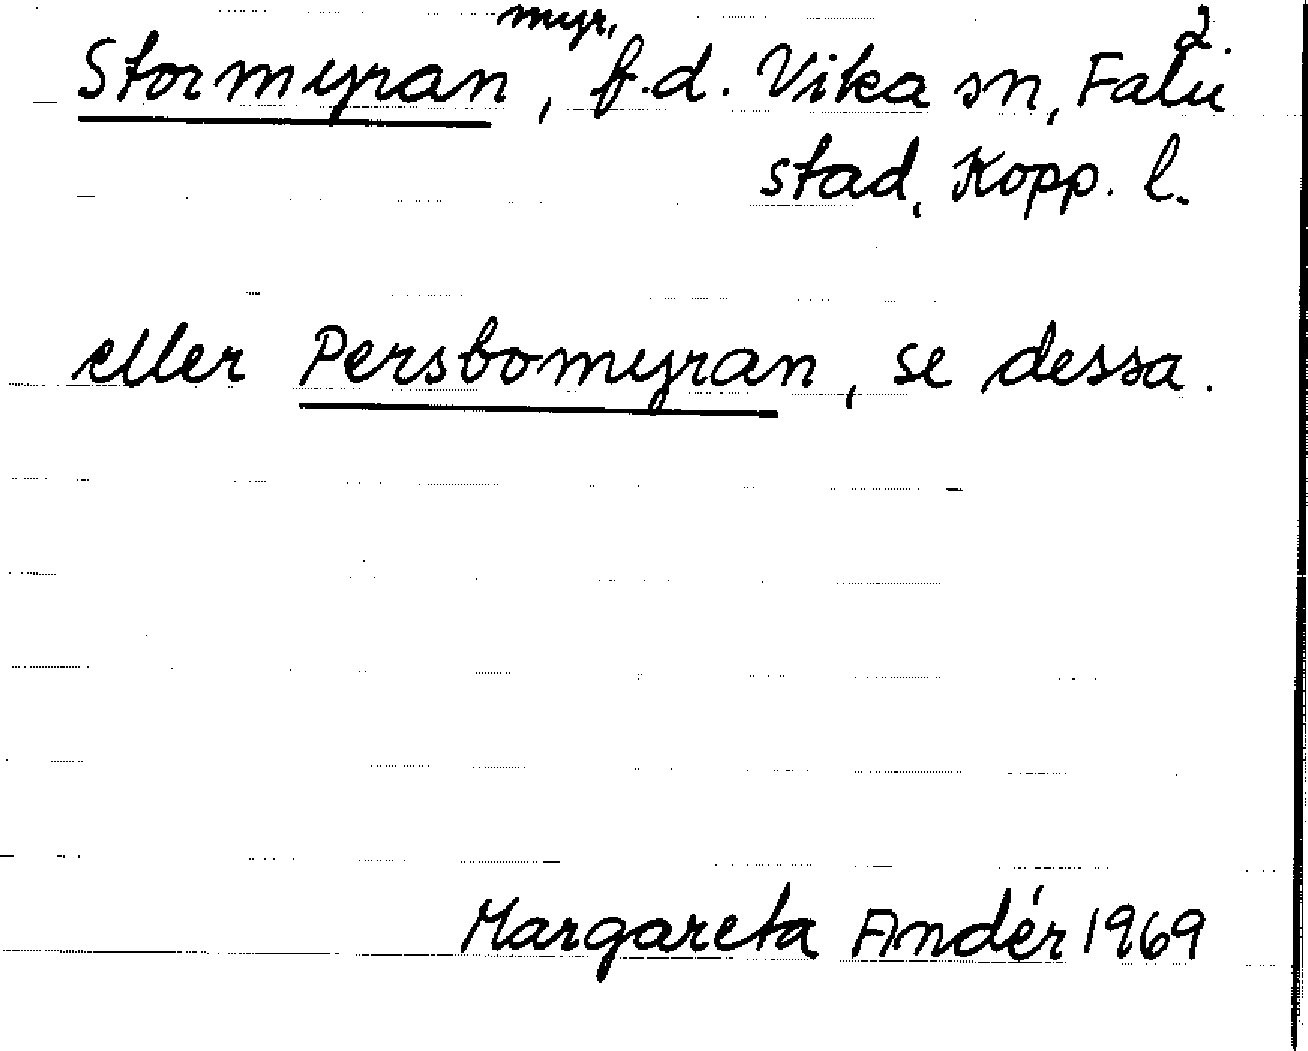 myr. 2.
Stormyran, f.d. Vika sn, Falu
stad, Kopp. l.
eller Persbomyran, se dessa.
Margareta Andér 1969